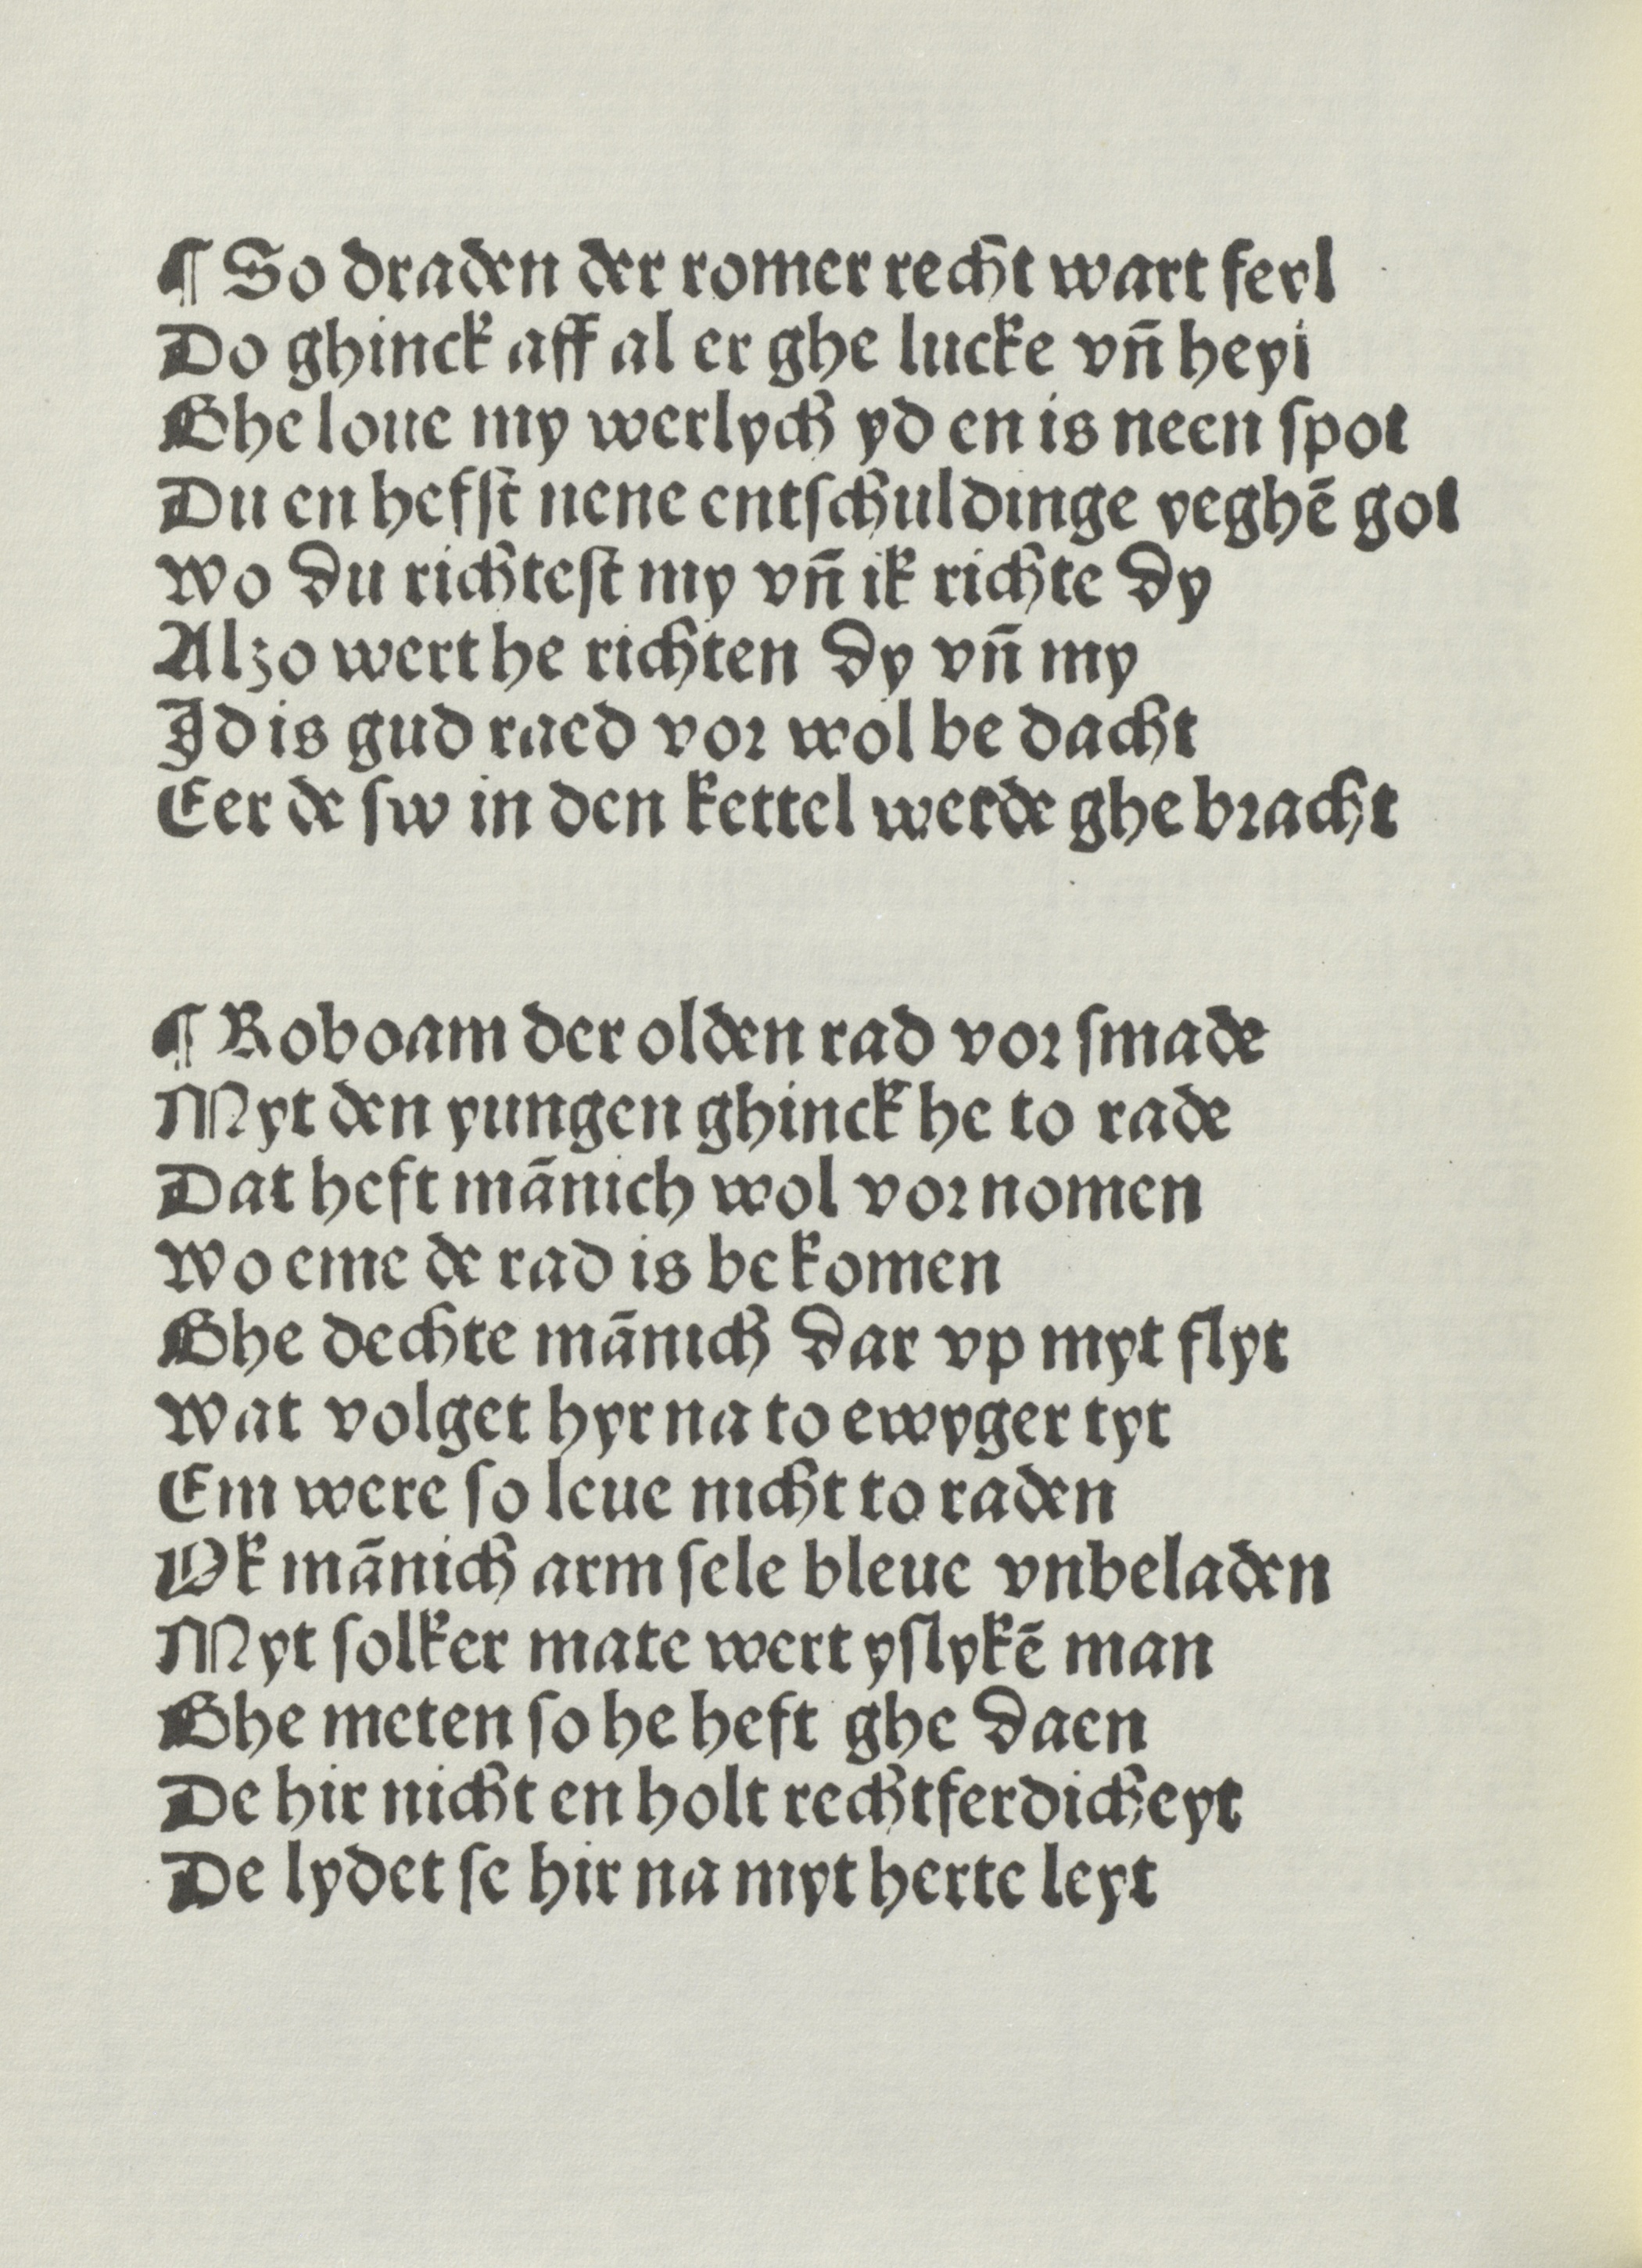 ¶ So draden der romer recht wart feyl
Do ghinck aff al er ghe lucke vn̄ heyl
Ghe loue my werlych yd en is neen ſpot
Du en hefſt nene entſchuldinge yeghē got
Wo du richteſt my vn̄ ik richte dy
Alzo wert he richten dy vn̄ my
Id is gud raed vor wol be dacht
Eer de ſw in den kettel werde ghe bracht
¶ Roboam der olden rad vor ſmade
Myt den yungen ghinck he to rade
Dat heft mānich wol vor nomen
Wo eme de rad is be komen
Ghe dechte mānich dar vp myt flyt
Wat volget hyr na to ewyger tyt
Em were ſo leue nicht to raden
Ok mānich arm ſele bleue vnbeladen
Myt ſolker mate wert yſlykē man
Ghe meten ſo he heft ghe daen
De hir nicht en holt rechtferdicheyt
De lydet ſe hir na myt herte leyt